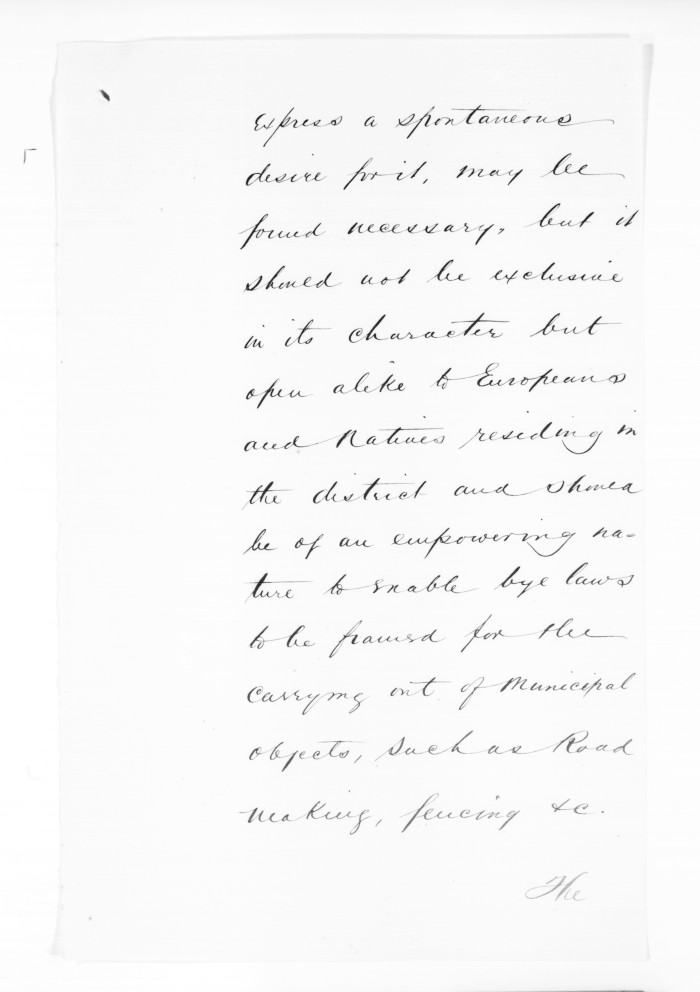 express a spontaneous
desire for it, may be
found necessary, but it
should not be exclusive
in its character but
open alike to Europeans
and Natives residing in
the district and should
be of an empowering na-
ture to enable bye laws
to be framed for the
carrying out of Municipal
objects, such as Road
making, fencing &c.
The